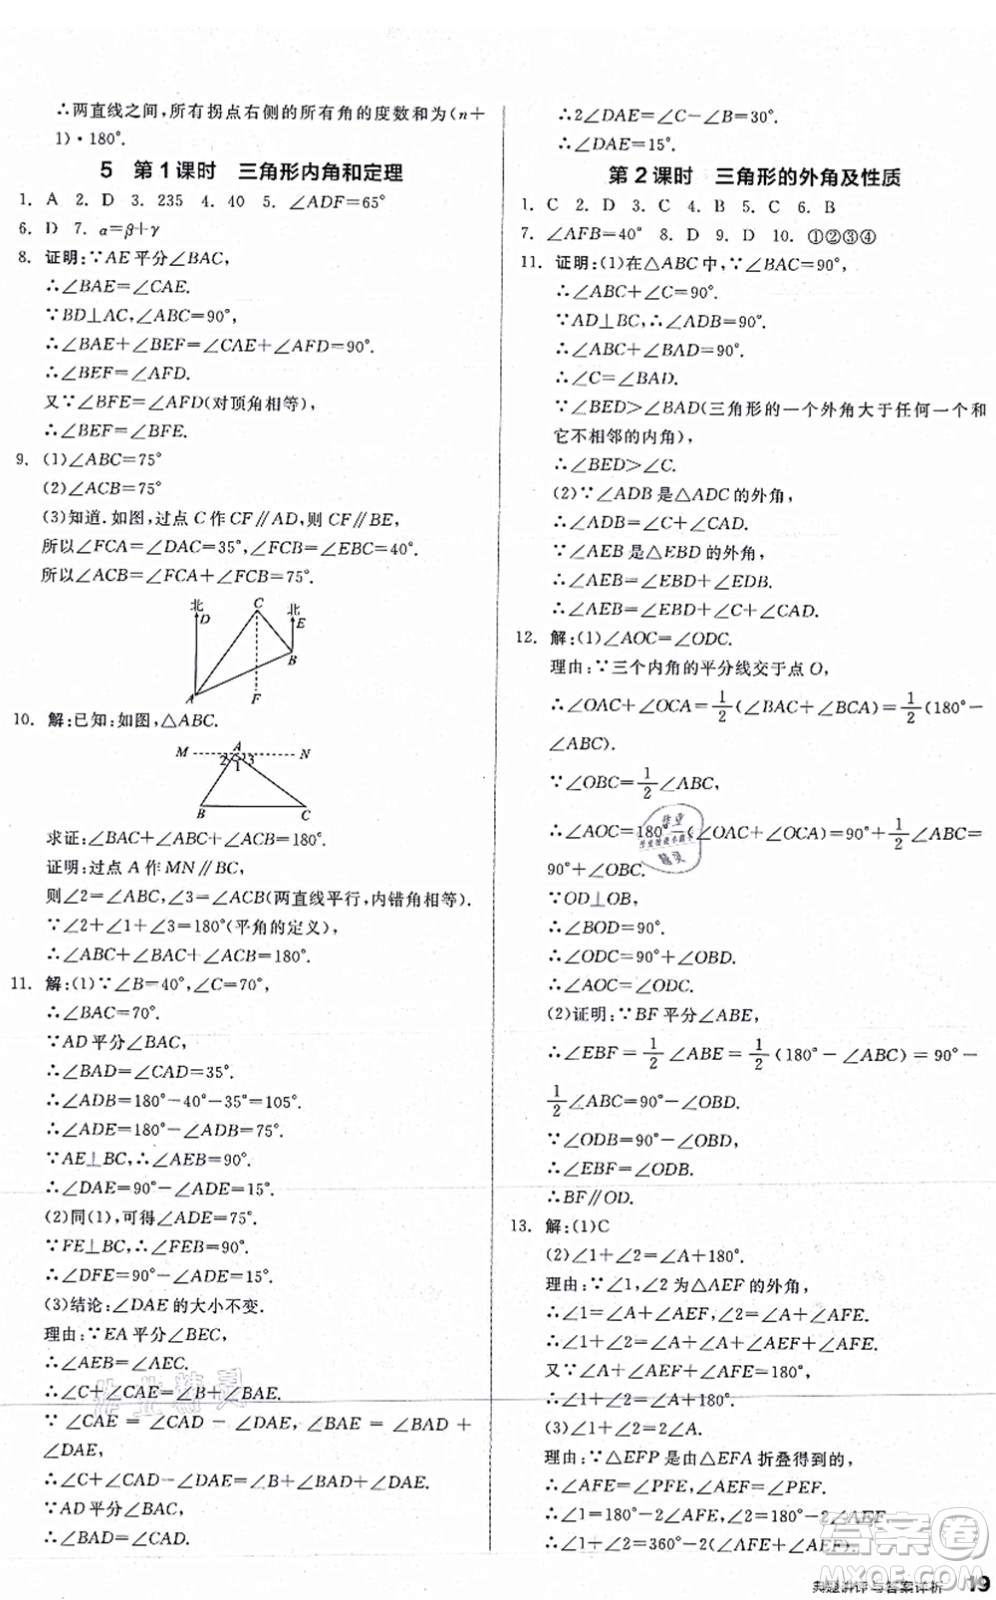 ∴两直线之间,所有拐点右侧的所有角的度数和为(n+
1)·180°.
5 第1课时 三角形内角和定理
1. A 2. D 3. 235 4. 40 5. ∠ADF=65°
6. D 7. α=β+γ
8. 证明:∵AE平分∠BAC,
∴∠BAE=∠CAE.
∵BD⊥AC,∠ABC=90°,
∴∠BAE+∠BEF=∠CAE+∠AFD=90°.
∴∠BEF=∠AFD.
又∵∠BFE=∠AFD(对顶角相等),
∴∠BEF=∠BFE.
9. (1)∠ABC=75°
(2)∠ACB=75°
(3)知道.如图,过点C作CF∥AD,则CF∥BE,
所以∠FCA=∠DAC=35°,∠FCB=∠EBC=40°.
所以∠ACB=∠FCA+∠FCB=75°.
北 C 北
D E
B
A F
10. 解:已知:如图,△ABC.
M A N
2 1 3
B C
求证:∠BAC+∠ABC+∠ACB=180°.
证明:过点A作MN∥BC,
则∠2=∠ABC,∠3=∠ACB(两直线平行,内错角相等).
∵∠2+∠1+∠3=180°(平角的定义),
∴∠ABC+∠BAC+∠ACB=180°.
11. 解:(1)∵∠B=40°,∠C=70°,
∴∠BAC=70°.
∵AD平分∠BAC,
∴∠BAD=∠CAD=35°.
∴∠ADB=180°-40°-35°=105°.
∴∠ADE=180°-∠ADB=75°.
∵AE⊥BC,∴∠AEB=90°.
∴∠DAE=90°-∠ADE=15°.
(2)同(1),可得∠ADE=75°.
∵FE⊥BC,∴∠FEB=90°.
∴∠DFE=90°-∠ADE=15°.
(3)结论:∠DAE的大小不变.
理由:∵EA平分∠BEC,
∴∠AEB=∠AEC.
∴∠C+∠CAE=∠B+∠BAE.
∵∠CAE=∠CAD-∠DAE,∠BAE=∠BAD+
∠DAE,
∴∠C+∠CAD-∠DAE=∠B+∠BAD+∠DAE.
∵AD平分∠BAC,
∴∠BAD=∠CAD.
∴2∠DAE=∠C-∠B=30°.
∴∠DAE=15°.
第2课时 三角形的外角及性质
1. C 2. D 3. D 4. C 5. C 6. B
7. ∠AFB=40° 8. D 9. D 10. ①②③④
11. 证明:(1)在△ABC中,∵∠BAC=90°,
∴∠ABC+∠C=90°.
∵AD⊥BC,∴∠ADB=90°.
∴∠ABC+∠BAD=90°.
∴∠C=∠BAD.
∵∠BED>∠BAD(三角形的一个外角大于任何一个和
它不相邻的内角),
∴∠BED>∠C.
(2)∵∠ADB是△ADC的外角,
∴∠ADB=∠C+∠CAD.
∵∠AEB是△EBD的外角,
∴∠AEB=∠EBD+∠EDB.
∴∠AEB=∠EBD+∠C+∠CAD.
12. 解:(1)∠AOC=∠ODC.
理由:∵三个内角的平分线交于点O,
∴∠OAC+∠OCA=1/2(∠BAC+∠BCA)=1/2(180°-
∠ABC).
∵∠OBC=1/2∠ABC,
∴∠AOC=180°-(∠OAC+∠OCA)=90°+1/2∠ABC=
90°+∠OBC.
∵OD⊥OB,
∴∠BOD=90°.
∴∠ODC=90°+∠OBD.
∴∠AOC=∠ODC.
(2)证明:∵BF平分∠ABE,
∴∠EBF=1/2∠ABE=1/2(180°-∠ABC)=90°-
1/2∠ABC=90°-∠OBD.
∵∠ODB=90°-∠OBD,
∴∠EBF=∠ODB.
∴BF∥OD.
13. 解:(1)C
(2)∠1+∠2=∠A+180°.
理由:∵∠1,∠2为△AEF的外角,
∴∠1=∠A+∠AEF,∠2=∠A+∠AFE.
∴∠1+∠2=∠A+∠A+∠AEF+∠AFE.
又∵∠A+∠AEF+∠AFE=180°,
∴∠1+∠2=∠A+180°.
(3)∠1+∠2=2∠A.
理由:∵△EFP是由△EFA折叠得到的,
∴∠AFE=∠PFE,∠AEF=∠PEF.
∴∠1=180°-2∠AFE,∠2=180°-2∠AEF.
∴∠1+∠2=360°-2(∠AFE+∠AEF).
典题讲评与答案详析 19
答案圈
作业精灵